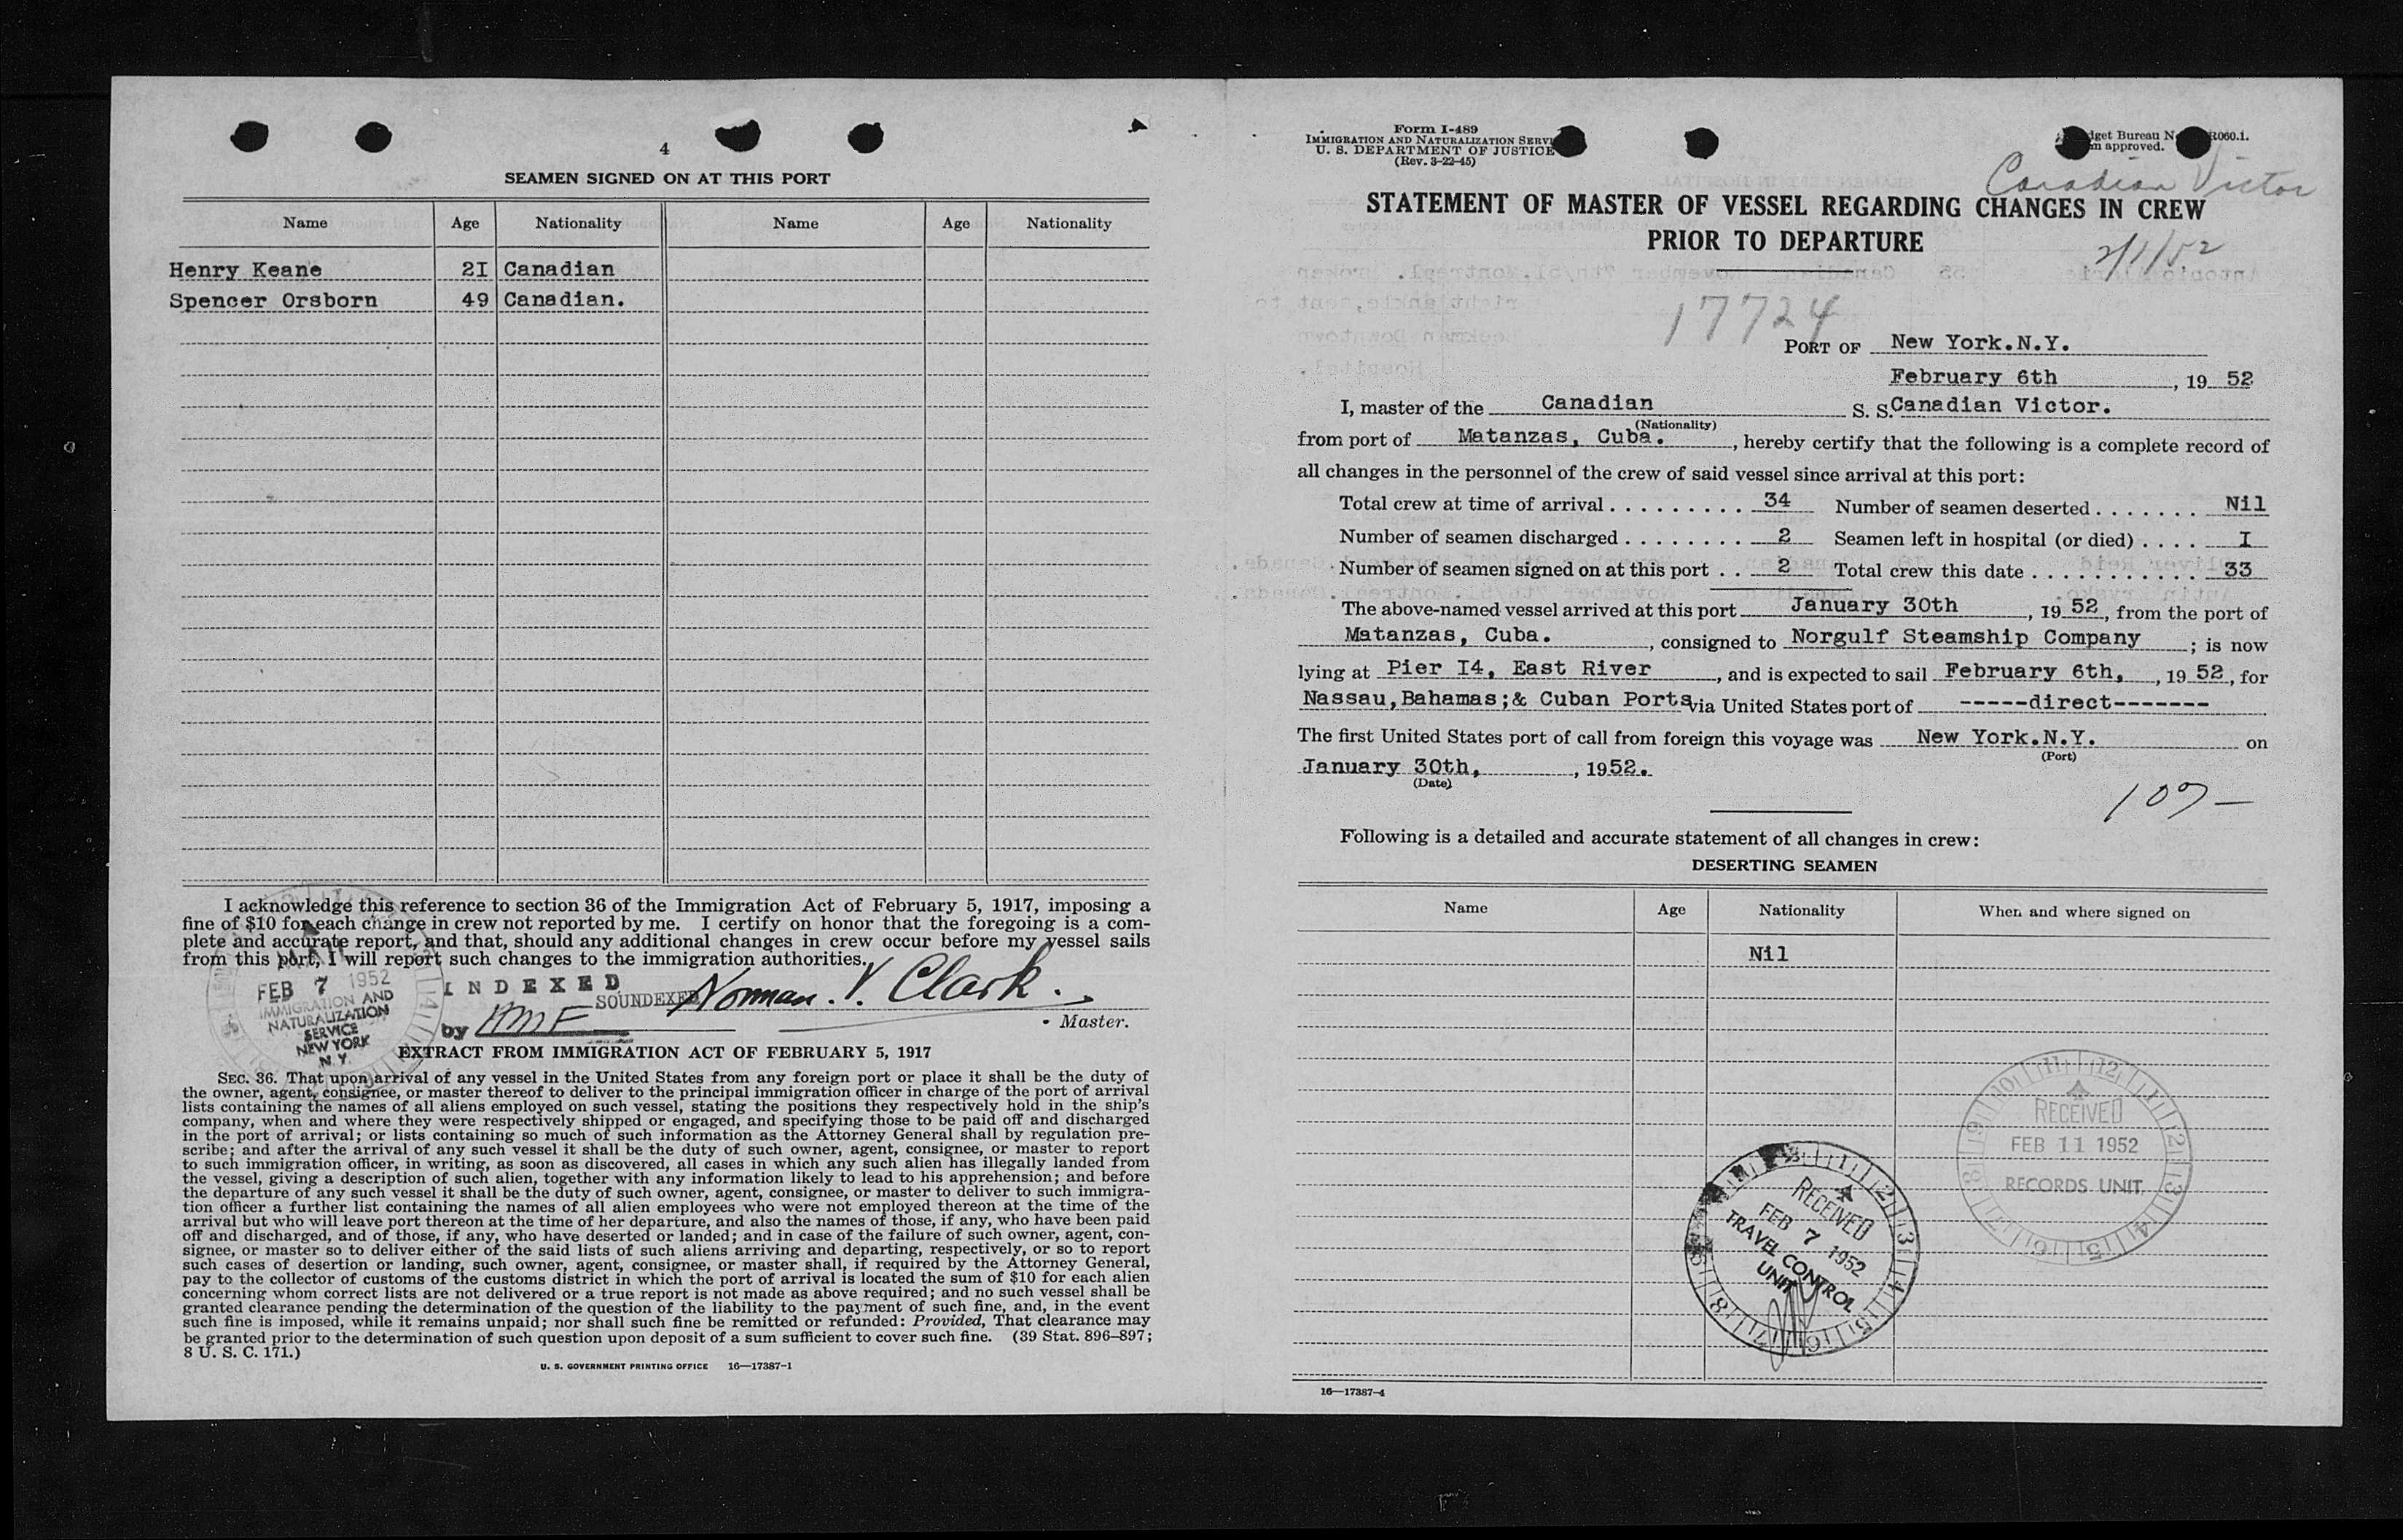 4
SEAMEN SIGNED ON AT THIS PORT
Name Age Nationality Name Age Nationality
Henry Keane 2I Canadian
Spencer Orsborn 49 Canadian.
I acknowledge this reference to section 36 of the Immigration Act of February 5, 1917, imposing a
fine of $10 for each change in crew not reported by me. I certify on honor that the foregoing is a com-
plete and accurate report, and that, should any additional changes in crew occur before my vessel sails
from this port, I will report such changes to the immigration authorities.
FEB 7 1952
IMMIGRATION AND
NATURALIZATION
SERVICE
NEW YORK
N. Y.
INDEXED
SOUNDEXED
Norman. V. Clark.
by
Master.
EXTRACT FROM IMMIGRATION ACT OF FEBRUARY 5, 1917
SEC. 36. That upon arrival of any vessel in the United States from any foreign port or place it shall be the duty of
the owner, agent, consignee, or master thereof to deliver to the principal immigration officer in charge of the port of arrival
lists containing the names of all aliens employed on such vessel, stating the positions they respectively hold in the ship's
company, when and where they were respectively shipped or engaged, and specifying those to be paid off and discharged
in the port of arrival; or lists containing so much of such information as the Attorney General shall by regulation pre-
scribe; and after the arrival of any such vessel it shall be the duty of such owner, agent, consignee, or master to report
to such immigration officer, in writing, as soon as discovered, all cases in which any such alien has illegally landed from
the vessel, giving a description of such alien, together with any information likely to lead to his apprehension; and before
the departure of any such vessel it shall be the duty of such owner, agent, consignee, or master to deliver to such immigra-
tion officer a further list containing the names of all alien employees who were not employed thereon at the time of the
arrival but who will leave port thereon at the time of her departure, and also the names of those, if any, who have been paid
off and discharged, and of those, if any, who have deserted or landed; and in case of the failure of such owner, agent, con-
signee, or master so to deliver either of the said lists of such aliens arriving and departing, respectively, or so to report
such cases of desertion or landing, such owner, agent, consignee, or master shall, if required by the Attorney General,
pay to the collector of customs of the customs district in which the port of arrival is located the sum of $10 for each alien
concerning whom correct lists are not delivered or a true report is not made as above required; and no such vessel shall be
granted clearance pending the determination of the question of the liability to the payment of such fine, and, in the event
such fine is imposed, while it remains unpaid; nor shall such fine be remitted or refunded: Provided, That clearance may
be granted prior to the determination of such question upon deposit of a sum sufficient to cover such fine. (39 Stat. 896–897;
8 U. S. C. 171.)
U. S. GOVERNMENT PRINTING OFFICE 16—17387-1
Form I-489
IMMIGRATION AND NATURALIZATION SERVI
U. S. DEPARTMENT OF JUSTICE
(Rev. 3-22-45)
dget Bureau N R060.1.
m approved.
Canadian Victor
STATEMENT OF MASTER OF VESSEL REGARDING CHANGES IN CREW
PRIOR TO DEPARTURE
2/1/52
17724
PORT OF New York.N.Y.
February 6th, 19 52
I, master of the Canadian S. S. Canadian Victor.
(Nationality)
from port of Matanzas, Cuba., hereby certify that the following is a complete record of
all changes in the personnel of the crew of said vessel since arrival at this port:
Total crew at time of arrival . . . . . . . . . 34 Number of seamen deserted . . . . . . . Nil
Number of seamen discharged . . . . . . . . 2 Seamen left in hospital (or died) . . . . I
Number of seamen signed on at this port . . 2 Total crew this date . . . . . . . . . . . . 33
The above-named vessel arrived at this port January 30th, 19 52, from the port of
Matanzas, Cuba., consigned to Norgulf Steamship Company; is now
lying at Pier I4, East River, and is expected to sail February 6th,, 19 52, for
Nassau,Bahamas;& Cuban Ports via United States port of -----direct-------
The first United States port of call from foreign this voyage was New York.N.Y. on
(Port)
January 30th,, 1952.
(Date)
107—
Following is a detailed and accurate statement of all changes in crew:
DESERTING SEAMEN
Name Age Nationality When and where signed on
Nil
RECEIVED
FEB 11 1952
RECORDS UNIT
RECEIVED
FEB 7 1952
TRAVEL CONTROL
UNIT
16—17387-4